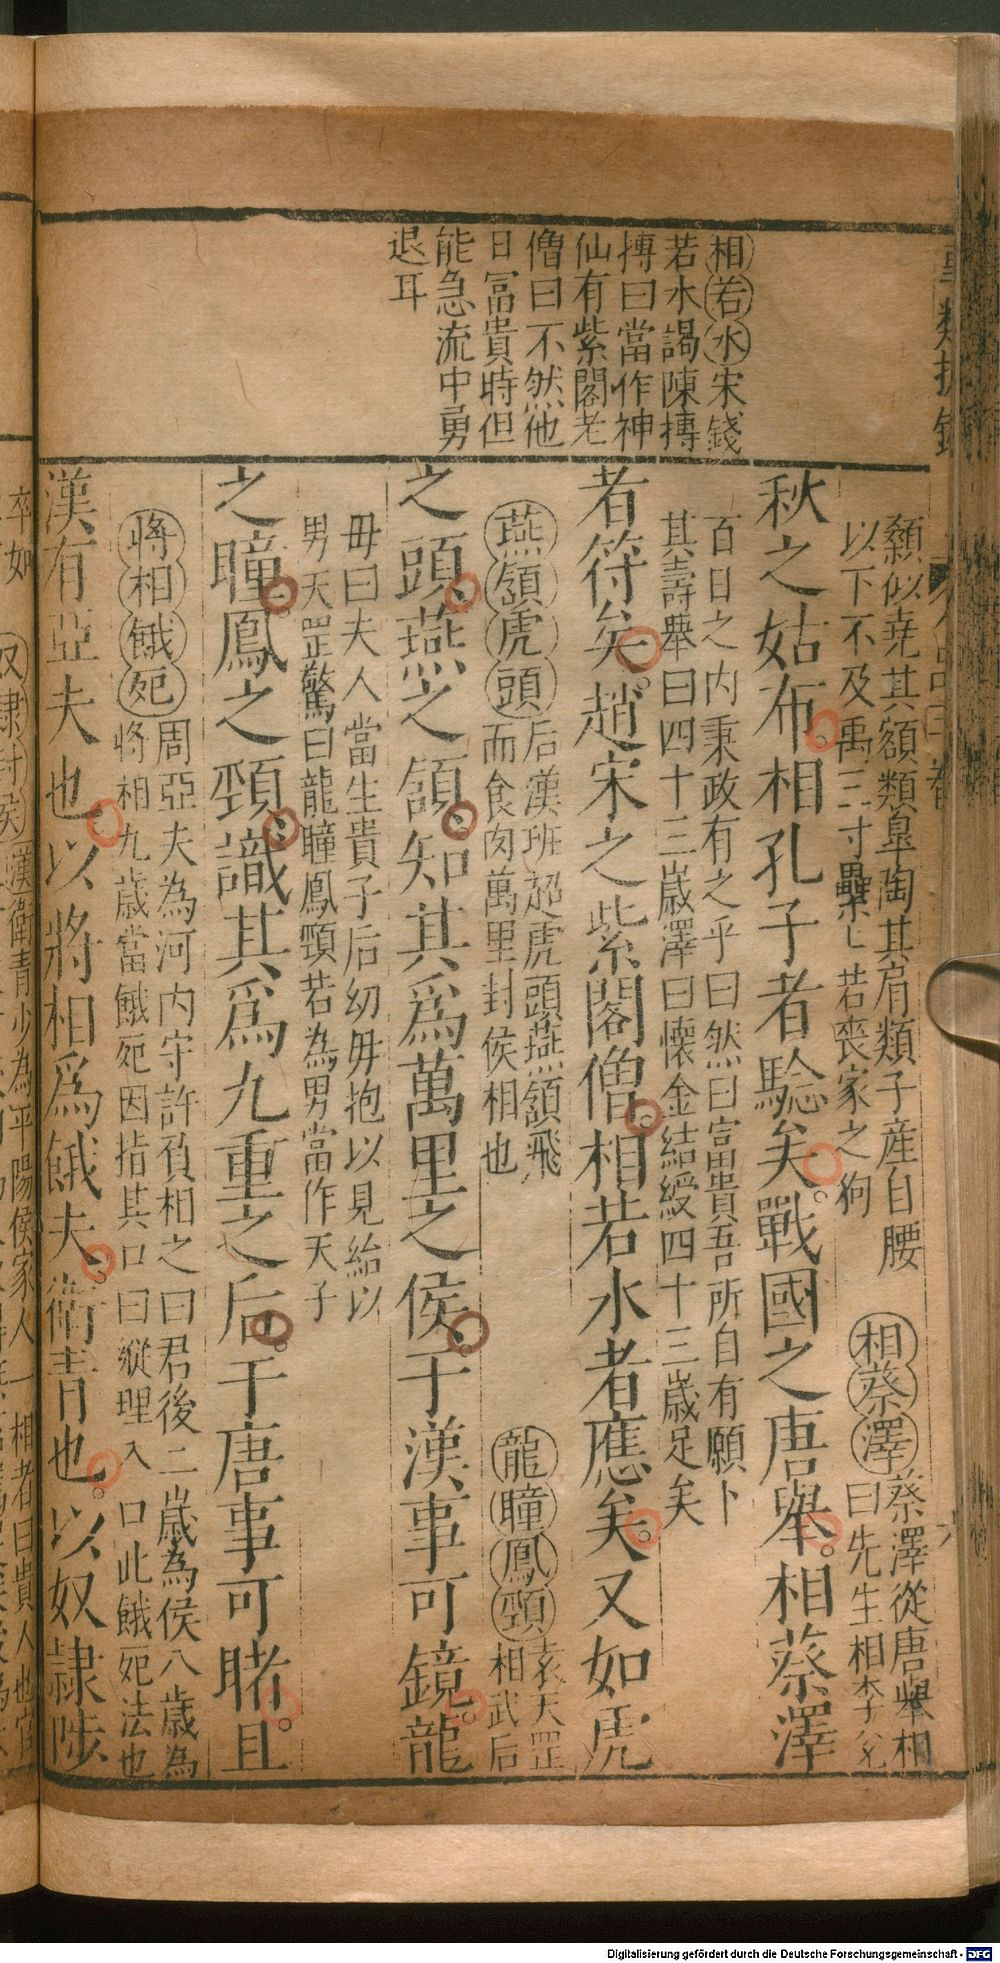 相若水宋錢
若水謁陳摶
摶曰當作神
仙有紫閣老
僧曰不然他
日冨貴時但
能急流中勇
退耳
顙似尭其額類臯陶其肩類子產自腰
以下不及禹三寸
若喪家之狗
相蔡澤
蔡澤從唐舉相
曰先生相李兊
秋之姑布相孔子者騐矣戰國之唐舉相蔡澤
百日之内秉政有之乎曰然曰富貴吾所自有願卜
其壽舉曰四十三嵗澤曰懷金結綬四十三嵗足矣
者符矣趙宋之紫閣僧相若水者應矣又如虎
燕頷虎頭
后漢班超虎頭燕頷飛
而食肉萬里封侯相也
龍瞳鳳頸
袁天罡
相武后
之頭燕之頷知其爲萬里之侯于漢事可鏡龍
毋曰夫人當生貴子后幼毋抱以見紿以
男天罡驚曰龍瞳鳳頸若為男當作天子
之瞳鳳之頸識其爲九重之后于唐事可睹且
將相餓死
周亞夫為河内守許負相之曰君後二嵗為侯八嵗為
將相九嵗當餓死因指其口曰縱理入口此餓死法也
漢有亞夫也以將相爲餓夫衛青也以奴隷陟